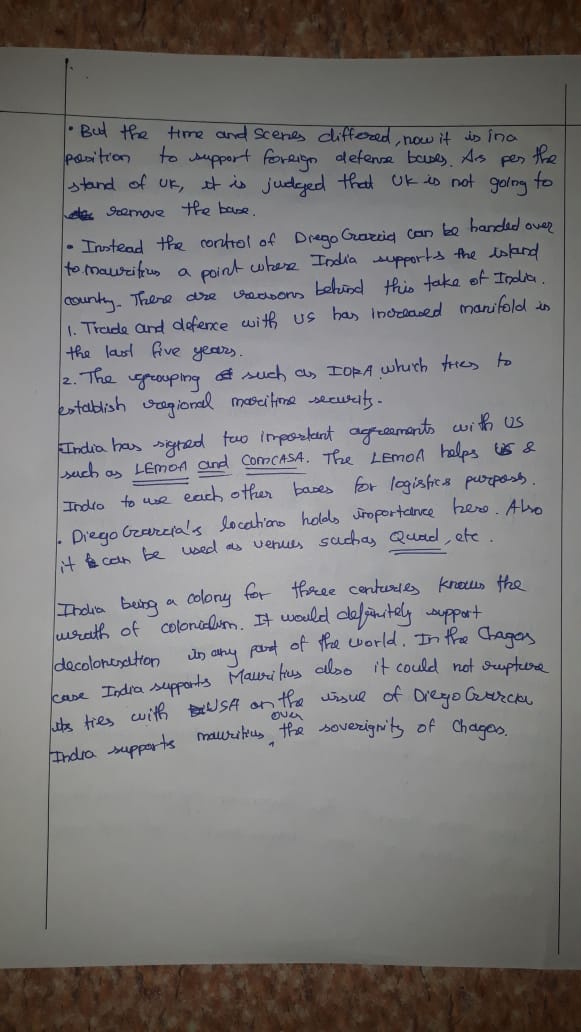 • But the time and scenes differed, now it is in a
position to support foreign defense bases. As per the
stand of UK, it is judged that UK is not going to
remove the base.
• Instead the control of Diego Grarcia can be handed over
to mauritius a point where India supports the island
county. There are reasons behind this take of India.
1. Trade and defence with US has increased manifold in
the last five years.
2. The grouping such as IORA which tries to
establish regional maritime security.
India has signed two important agreements with US
such as LEMOA and COMCASA. The LEMOA helps US &
India to use each other bases for logistics purposes.
• Diego Grarcia's locations holds importance here. Also
it can be used as venues such as Quad, etc.
India being a colony for three centuries knows the
wrath of colonialism. It would definitely support
decolonisation in any part of the world. In the Chagos
case India supports Mauritius also it could not rupture
its ties with USA on the issue of Diego Grarcia
India supports mauritius over the soverignity of Chagos.